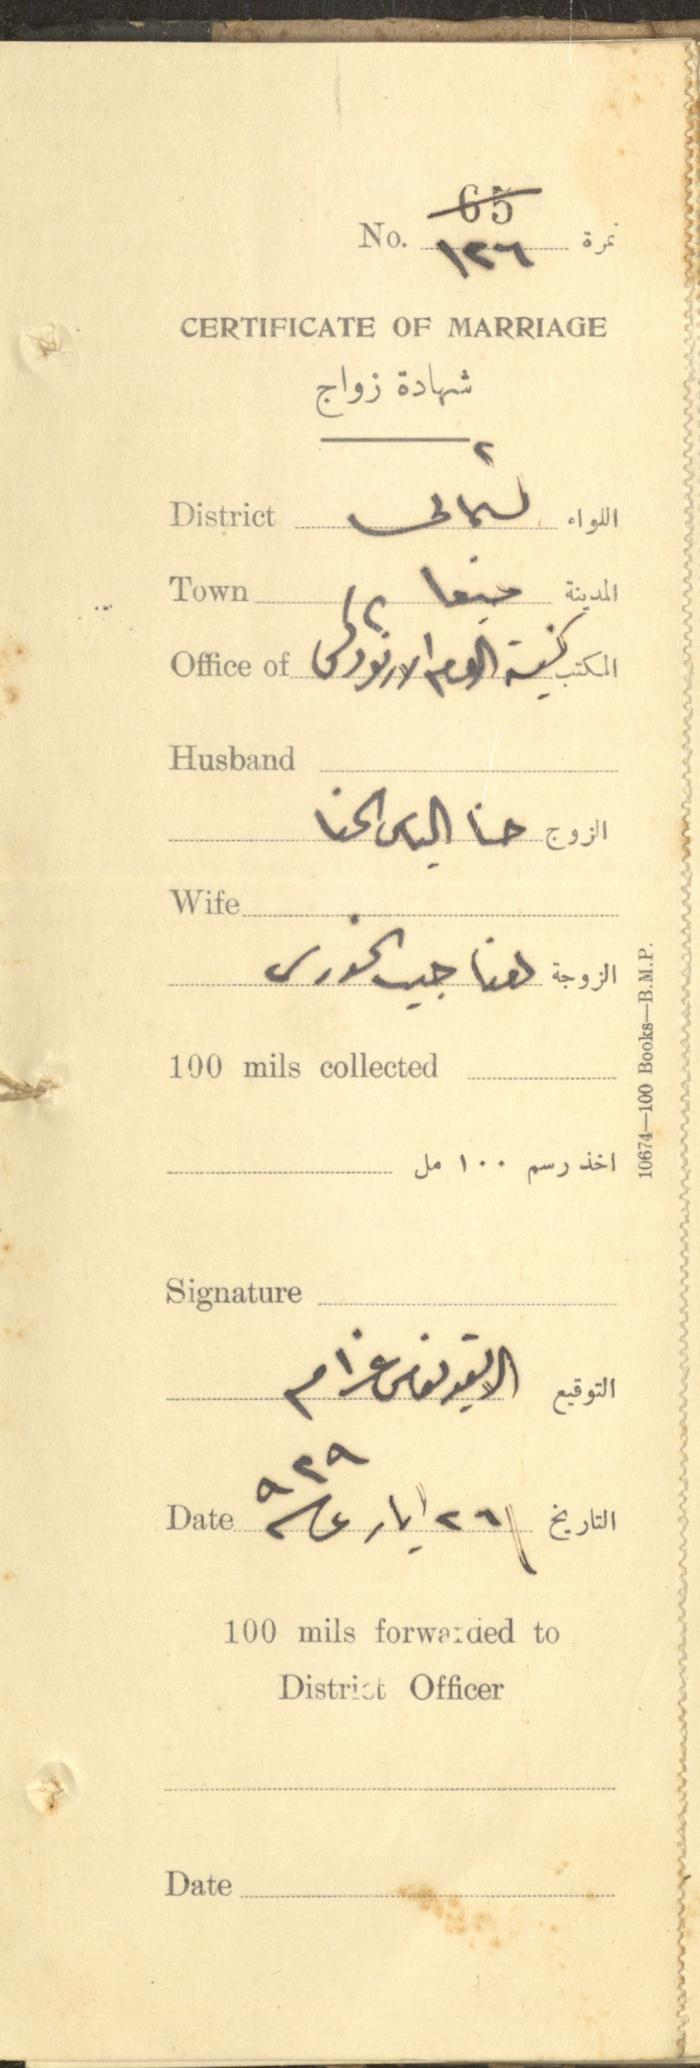 65
No. ١٢٦ نمرة
CERTIFICATE OF MARRIAGE
شهادة زواج
District الشمالي اللواء
Town حيفا المدينة
Office of كنيسة الروم الارثوذكس المكتب
Husband
الزوج حنا الياس الحنا
Wife
الزوجة نجيب الخوري
100 mils collected
اخذ رسم ١٠٠ مل
Signature
التوقيع عزام
Date ٢٦ ايار سنة ٩٢٩ التاريخ
100 mils forwarded to
District Officer
Date
10674—100 Books—B.M.P.